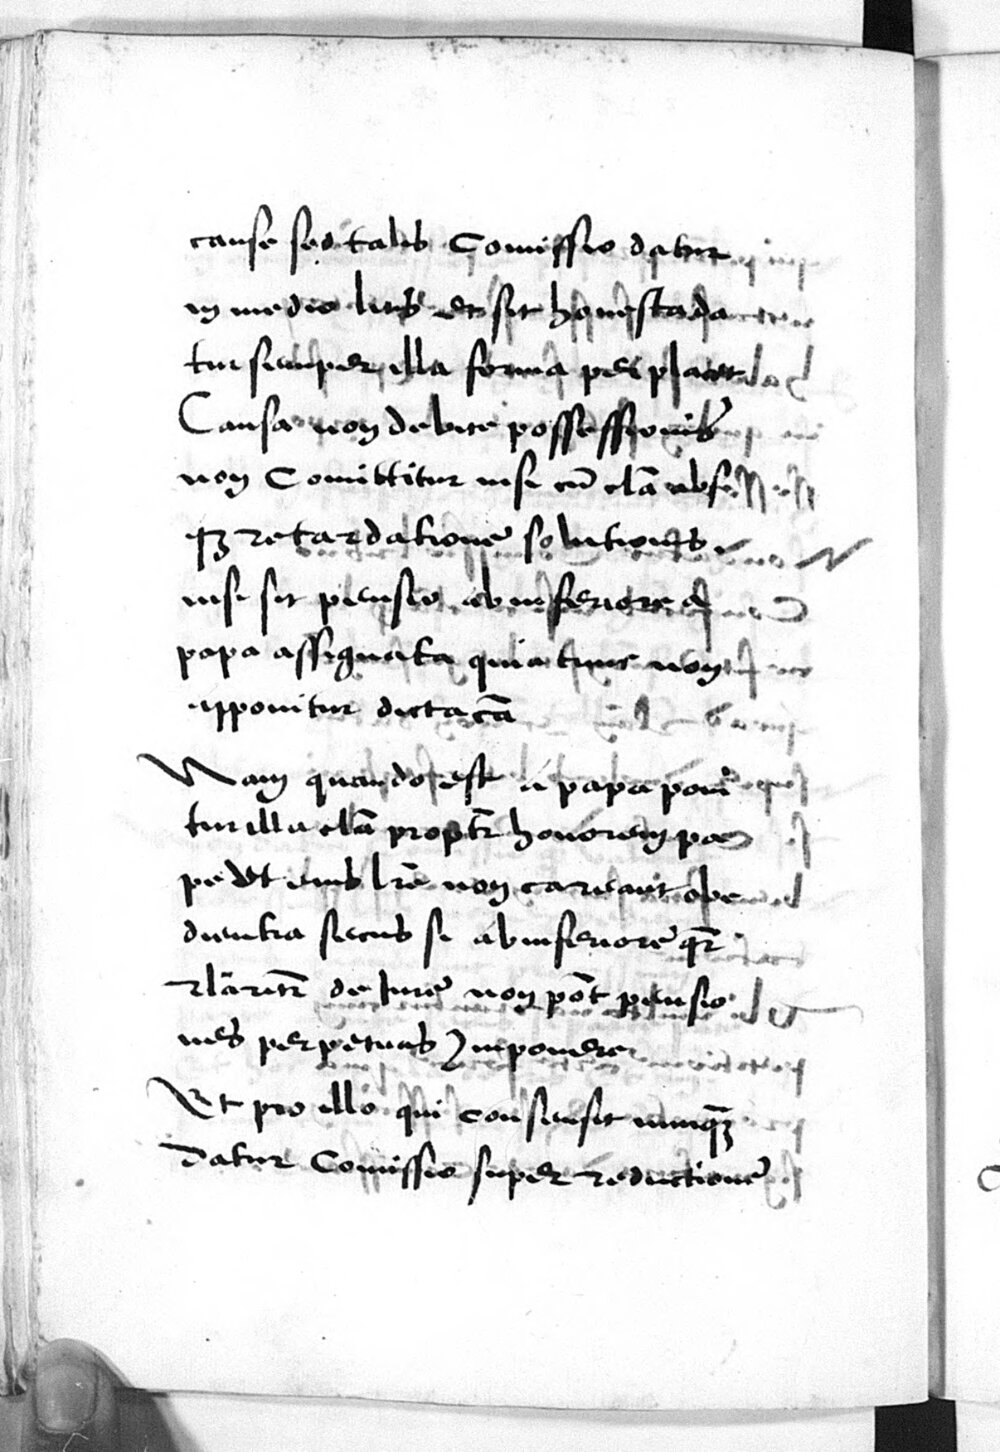 cause sed talis Comissio datur
in medio litis Et sit honesta da
tur semper illa forma per placet
Causa non debite possessionis
non Comittitur nisi cū clā abs
qȝ retardatione solutionis
nisi sit pensio ab inferiore q̄
papa assignata quia tunc non
apponitur dicta cā
Nam quando est a papa poni
tur illa clā propt̄ honorem pa
pe Vt eius lrē non careant obe
dientia secus si ab inferiore qr̄
de Jure non pōt pensio
nes perpetuas Imponere
Et pro illo qui consensit nunqȝ
Datur Comissio super reductione